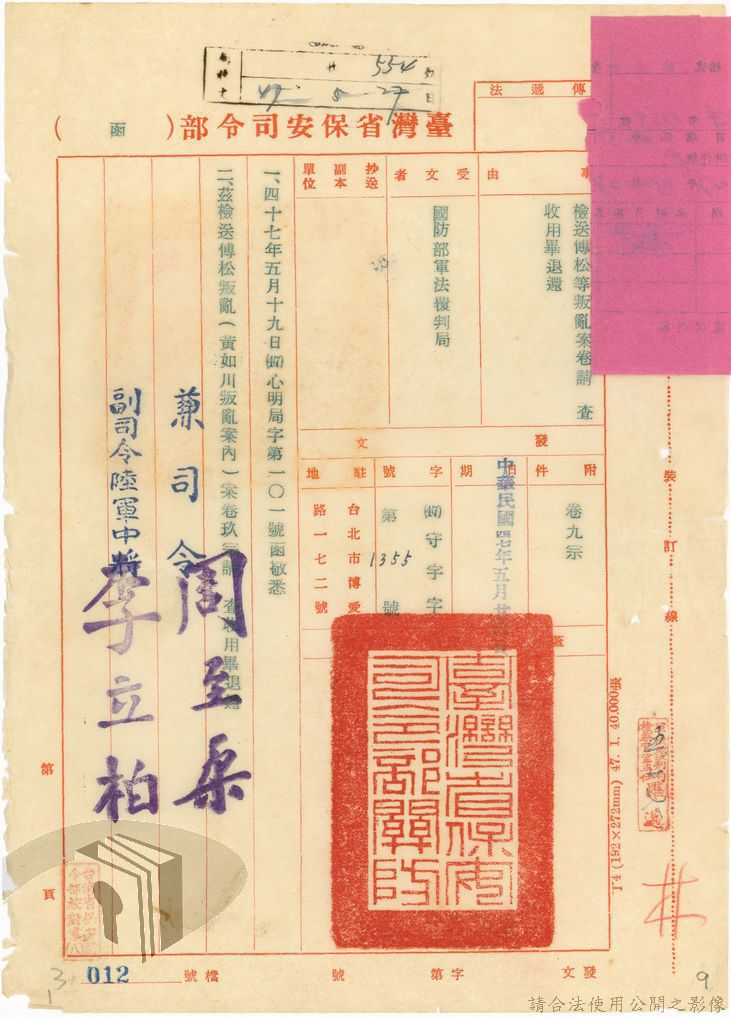 554
47 5 27
臺灣省保安司令部(函)
法遞傳
事由
檢送傅松等叛亂案卷請 查
收用畢退還
受文者
國防部軍法覆判局
抄送副本單位
發文
附件
卷九宗
日期
中華民國四七年五月廿
字號
(47)守字
第1355號
駐地
台北市博愛
路一七二號
一、四十七年五月十九日(47)心明局字第一〇一號函敬悉
二、茲檢送傅松叛亂(黃如川叛亂案內)案卷玖宗請 查收用畢退還
兼司令周至柔
副司令陸軍中將李立柏
臺灣省保安司令部關防
裝訂線
T-4 (192×272mm) 47. 1. 40.000張
第 頁
發文 字第 號
檔號 012
9
請合法使用公開之影像